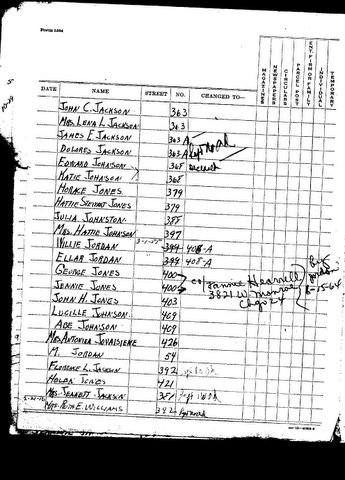 Form 1564
DATE NAME STREET NO. CHANGED TO— MAGAZINES NEWSPAPERS CIRCULARS PARCEL POST ENT. FIRM OR FAMILY INDIVIDUAL TEMPORARY
JOHN C. JACKSON 363
MRS. LENA L. JACKSON 363
JAMES E. JACKSON 363 A
DOLORES JACKSON 363 A
EDWARD JOHNSON 368
KATIE JOHNSON 368
HORACE JONES 379
HATTIE STEWART JONES 379
JULIA JOHNSTON 388
MRS. HATTIE JOHNSON 397
WILLIE JORDAN 394 408-A
ELLAR JORDAN 394 408-A
GEORGE JONES 400 c/o Fannie
JENNIE JONES 400 3821 W. Monroe
JOHN H. JONES 403 Chgo 24
LUCILLE JOHNSON 409
ABE JOHNSON 409
MRS ANTONICA JOVAISIENE 426
M. JORDAN 54
FLORENCE L. JACKSON 392
HELEN JONES 421
MRS. JEANETT JACKSON 381
MRS. RUTH E. WILLIAMS 392